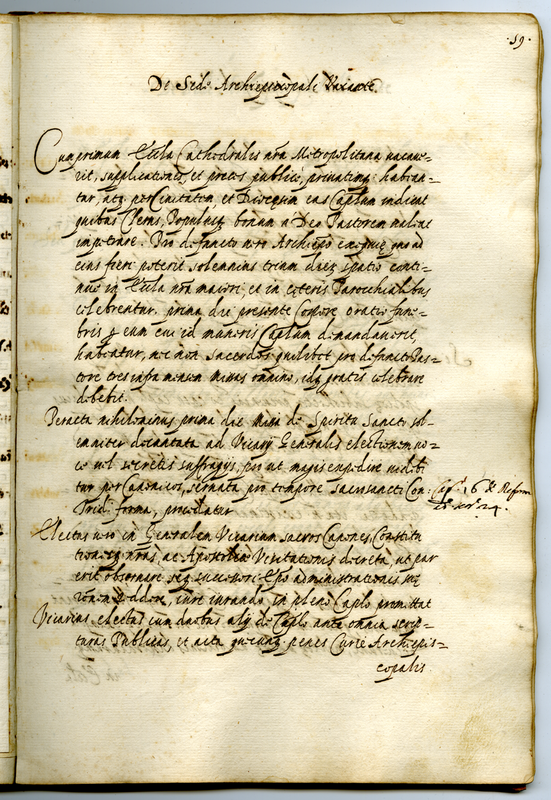 ·59·
De Sede Archiepiscopali Vacante.
Cum primum Eccl̃ia Cathedralis nr̃a Metropolitana vacaue=
rit, supplicationes, et preces publicè, priuatimq; habean=
tur, atq; per Ciuitatem, et Diœcesim eas Cap̃lum indicat
quibus Clerus, Populusq; bonum a Deo Pastorem valeat
impetrare. Pro defuncto uero Archiepõ exequiæ quo ad
eius fieri poterit solemnius trium dierum spatio conti=
nuo in Eccl̃ia nr̃a maiori, et in cæteris Parochialibus
celebrentur. prima die presente Corpore oratio fune=
bris p eum cui id muneris Cap̃lum demandauerit,
habeatur, nec non sacerdos quilibet pro defuncto Pas=
tore tres infra mensem missas omnino, idq; gratis celebrare
debebit.
Peracta nihilominus prima die Missa de Spiritu Sancto sol=
emniter decantata ad Vicarij Generalis electionem uo=
ce uel secretis suffragijs, pro ut magis expedire uidebi
tur per Canonicos, seruata pro tempore Sacrosancti Con:
Trid: forma, procedatur
Cap. 16 de Reform
sess. 24.
Electus uero in Generalem Vicarium sacros Canones, Constitu
tionesq; nr̃as, ac Apostolicæ Visitationis decreta, ut par
erit obseruare, seq; successori Ep̃o administrationis suæ
rationem reddere, iure iurando in pleno Cap̃lo promittat
Vicarius electus cum duobus alijs de Cap̃lo ante omnia scrip=
turas Publicas, et acta quæcunq; penes Curiæ Archiepis=
copalis